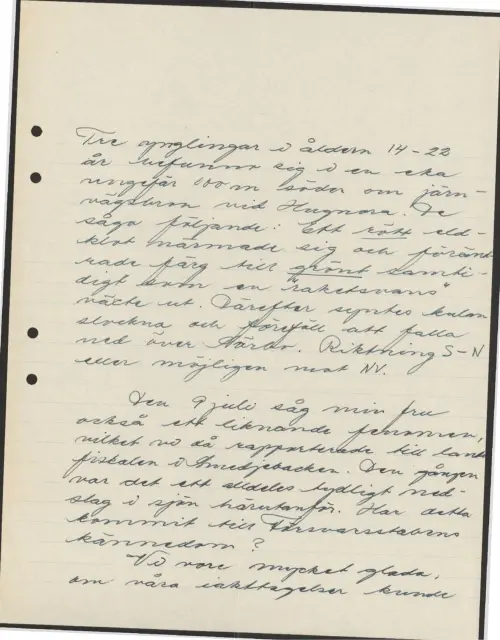 Tre ynglingar i åldern 14-22
år befunno sig i en eka
ungefär 100 m söder om järn-
vägsbron vid Hugnora. De
sågo följande: Ett rött eld-
klot närmade sig och föränd-
rade färg till grönt samti-
digt som en "raketsvans"
växte ut. Därefter syntes kulan
slockna och föreföll att falla
ned över . Riktning S-N
eller möjligen mot NV.
Den 9 juli såg min fru
också ett liknande fenomen,
vilket vi då rapporterade till lands
fiskalen i Smedjebacken. Den gången
var det ett alldeles tydligt ned-
slag i sjön härutanför. Har detta
kommit till Försvarsstabens
kännedom?
Vi vore mycket glada,
om våra iakttagelser kunde